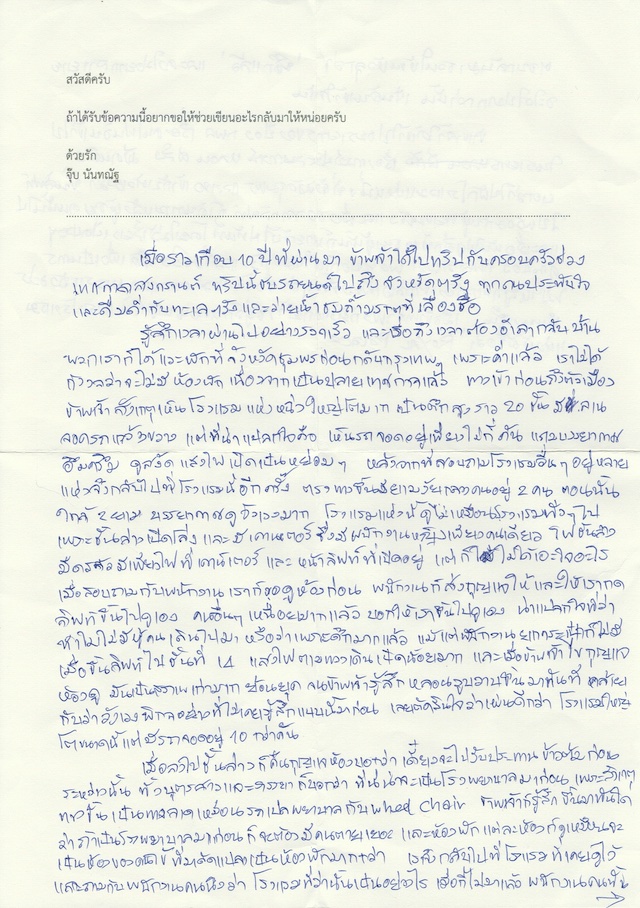 สวัสดีครับ
ถ้าได้รับข้อความนี้อยากขอให้ช่วยเขียนอะไรกลับมาให้หน่อยครับ
ด้วยรัก
จุ๊บ นันทณัฐ
เมื่อราวเกือบ 10 ปีที่ผ่านมา ข้าพเจ้าได้ไปทริปกับครอบครัวช่วง
เทศกาลสงกรานต์ ทริปนี้ขับรถยนต์ไปถึง จังหวัดตรัง ทุกคนประทับใจ
และดื่มด่ำกับทะเลตรังและว่ายน้ำชมถ้ำมรกตที่เลื่องชื่อ
รู้สึกเวลาผ่านไปอย่างรวดเร็ว และเมื่อถึงเวลาต้องอำลากลับบ้าน
พวกเราก็ได้แวะพักที่จังหวัดชุมพรก่อนกลับกรุงเทพฯ เพราะค่ำแล้ว เราไม่ได้
กังวลว่าจะไม่มีห้องพัก เนื่องจากเป็นปลายเทศกาลแล้ว ทางเข้าก่อนถึงตัวเมือง
ข้าพเจ้าสังเกตุเห็นโรงแรมแห่งหนึ่งใหญ่โตมาก เป็นตึกสูงราว 20 ชั้น มีลาน
จอดรถกว้างขวาง แต่ที่น่าแปลกใจคือ เห็นรถจอดอยู่เพียงไม่กี่คัน แถมบรรยากาศ
อึมครึม ดูสงัด แสงไฟเปิดเป็นหย่อมๆ หลังจากที่สอบถามโรงแรมอื่นๆ อยู่หลาย
แห่งจึงกลับไปที่โรงแรมนี้อีกครั้ง ตรงทางขึ้นมียามวัยกลางคนอยู่ 2 คน ตอนนั้น
2 ยาม บรรยากาศดูวังเวงมาก โรงแรมแห่งนี้ดูไม่เหมือนโรงแรมทั่วๆ ไป
เพราะชั้นล่างเปิดโล่ง และมีเคาน์เตอร์ซึ่งมีพนักงานหญิงเพียงคนเดียว ไฟชั้นล่าง
มีเพียงไฟที่เคาน์เตอร์และหน้าลิฟท์ที่เปิดอยู่ แต่ก็ไม่ได้เอะใจอะไร
เมื่อสอบถามกับพนักงาน เราก็ขอดูห้องก่อน พนักงานก็ส่งกุญแจให้และให้เรากด
ลิฟท์ขึ้นไปดูเอง คนอื่นๆ เหนื่อยมากแล้ว บอกให้เราขึ้นไปดูเอง น่าแปลกใจที่ว่า
ทำไมไม่มีผู้คนเดินไปมา หรือว่าเพราะดึกมากแล้ว แม้แต่พนักงานยกกระเป๋าก็ไม่มี
เมื่อขึ้นลิฟท์ไปชั้นที่ 14 แสงไฟตามทางเดินเปิดน้อยมาก และเมื่อข้าพเจ้าไขกุญแจ
ห้องดู มันเป็นสภาพเก่ามาก ย้อนยุค จนข้าพเจ้ารู้สึกหลอนวูบวาบขึ้นมาทันที คล้าย
กับว่าวังเวงพิกลอย่างที่ไม่เคยรู้สึกแบบนี้มาก่อน เลยตัดสินใจว่าเผ่นดีกว่า โรงแรมใหญ่
โตขนาดนี้แต่มีรถจอดอยู่ 10 กว่าคัน
เมื่อลงไปชั้นล่างก็คืนกุญแจห้องบอกว่า เดี๋ยวจะไปรับประทานข้าวต้มก่อน
ระหว่างนั้น ทั้งบุตรสาวและภรรยาก็บอกว่า ที่นี่น่าจะเป็นโรงพยาบาลมาก่อน เพราะสังเกตุ
ทางขึ้นเป็นทางลาดเหมือนรถเปลพยาบาลกับ Wheel Chair ข้าพเจ้าก็รู้สึกขึ้นมาทันใด
ว่าถ้าเป็นโรงพยาบาลมาก่อนก็จะต้องมีคนตายเยอะ และห้องพักแต่ละห้องก็ดูเหมือนจะ
เป็นห้องของคนไข้ ที่มาดัดแปลงเป็นห้องพักมากกว่า จึงกลับไปที่โรงแรมที่เคยดูไว้
และถามกับพนักงานคนนึงว่า โรงแรมที่ว่านั้นเป็นอย่างไร เมื่อกี้ไปมาแล้ว พนักงานคนนั้น